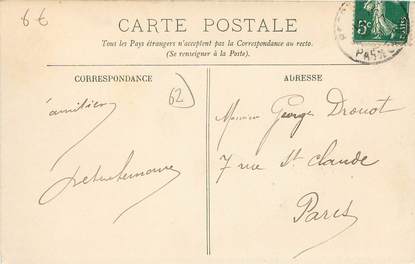 6 €
CARTE POSTALE
Tous les Pays étrangers n'acceptent pas la Correspondance au recto.
(Se renseigner à la Poste).
CORRESPONDANCE
ADRESSE
62
5c
Monsieur Georges Drouot
7 rue St Claude
Paris